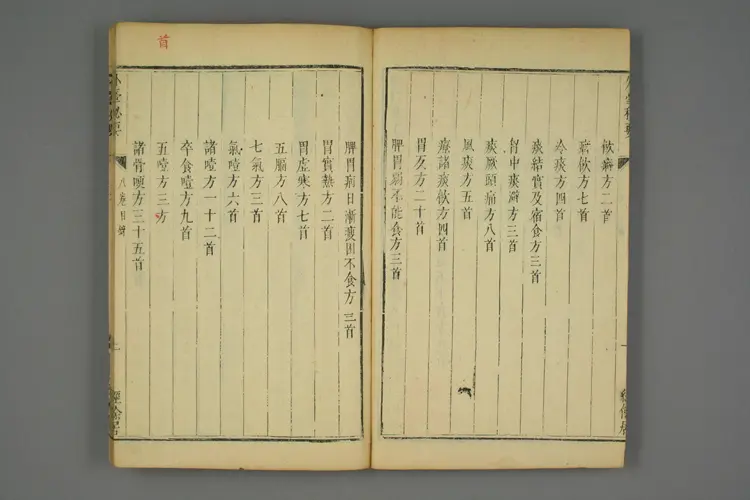 飲癖方二首
癖飲方七首
冷痰方四首
痰結實及宿食方三首
胷中痰澼方三首
痰厥頭痛方八首
風痰方五首
療諸痰飲方四首
胃反方二十首
脾胃弱不能食方三首
脾胃病日漸瘦困不食方三首
胃實熱方二首
胃虛寒方七首
五膈方八首
七氣方三首
氣噎方六首
諸噎方一十二首
卒食噎方九首
五噎方三方
諸骨哽方三十五首
首
八卷目錄
二
經餘居